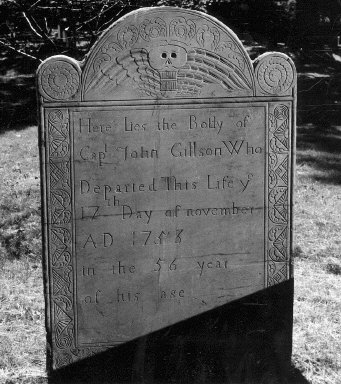 Here Lies the Body of
Capt John Gillson Who
Departed This Life ye
17th Day of november
AD 1758
in the 56 year
of his age